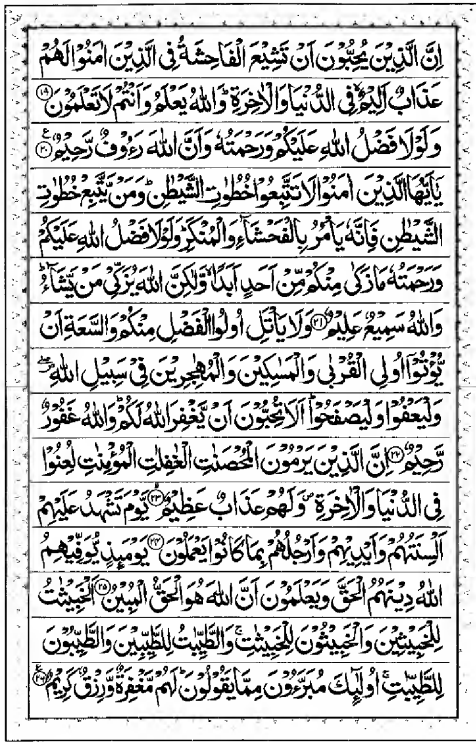 اِنَّ الَّذِيْنَ يُحِبُّوْنَ اَنْ تَشِيْعَ الْفَاحِشَةُ فِى الَّذِيْنَ اٰمَنُوْا لَهُمْ
عَذَابٌ اَلِيْمٌ ۙ فِى الدُّنْيَا وَالْاٰخِرَةِ ؕ وَاللّٰهُ يَعْلَمُ وَاَنْتُمْ لَا تَعْلَمُوْنَ ۝۱۹
وَلَوْلَا فَضْلُ اللّٰهِ عَلَيْكُمْ وَرَحْمَتُهٗ وَاَنَّ اللّٰهَ رَءُوْفٌ رَّحِيْمٌ ۝۲۰
يٰۤاَيُّهَا الَّذِيْنَ اٰمَنُوْا لَا تَتَّبِعُوْا خُطُوٰتِ الشَّيْطٰنِ ؕ وَمَنْ يَّتَّبِعْ خُطُوٰتِ
الشَّيْطٰنِ فَاِنَّهٗ يَاْمُرُ بِالْفَحْشَآءِ وَالْمُنْكَرِ ؕ وَلَوْلَا فَضْلُ اللّٰهِ عَلَيْكُمْ
وَرَحْمَتُهٗ مَا زَكٰى مِنْكُمْ مِّنْ اَحَدٍ اَبَدًا ۙ وَّلٰكِنَّ اللّٰهَ يُزَكِّىْ مَنْ يَّشَآءُ ؕ
وَاللّٰهُ سَمِيْعٌ عَلِيْمٌ ۝۲۱ وَلَا يَاْتَلِ اُولُوا الْفَضْلِ مِنْكُمْ وَالسَّعَةِ اَنْ
يُّؤْتُوْۤا اُولِى الْقُرْبٰى وَالْمَسٰكِيْنَ وَالْمُهٰجِرِيْنَ فِىْ سَبِيْلِ اللّٰهِ ۖ
وَلْيَعْفُوْا وَلْيَصْفَحُوْا ؕ اَلَا تُحِبُّوْنَ اَنْ يَّغْفِرَ اللّٰهُ لَكُمْ ؕ وَاللّٰهُ غَفُوْرٌ
رَّحِيْمٌ ۝۲۲ اِنَّ الَّذِيْنَ يَرْمُوْنَ الْمُحْصَنٰتِ الْغٰفِلٰتِ الْمُؤْمِنٰتِ لُعِنُوْا
فِى الدُّنْيَا وَالْاٰخِرَةِ ۪ وَلَهُمْ عَذَابٌ عَظِيْمٌ ۝۲۳ يَّوْمَ تَشْهَدُ عَلَيْهِمْ
اَلْسِنَتُهُمْ وَاَيْدِيْهِمْ وَاَرْجُلُهُمْ بِمَا كَانُوْا يَعْمَلُوْنَ ۝۲۴ يَوْمَئِذٍ يُّوَفِّيْهِمُ
اللّٰهُ دِيْنَهُمُ الْحَقَّ وَيَعْلَمُوْنَ اَنَّ اللّٰهَ هُوَ الْحَقُّ الْمُبِيْنُ ۝۲۵ اَلْخَبِيْثٰتُ
لِلْخَبِيْثِيْنَ وَالْخَبِيْثُوْنَ لِلْخَبِيْثٰتِ ۚ وَالطَّيِّبٰتُ لِلطَّيِّبِيْنَ وَالطَّيِّبُوْنَ
لِلطَّيِّبٰتِ ۚ اُولٰٓئِكَ مُبَرَّءُوْنَ مِمَّا يَقُوْلُوْنَ ؕ لَهُمْ مَّغْفِرَةٌ وَّرِزْقٌ كَرِيْمٌ ۝۲۶